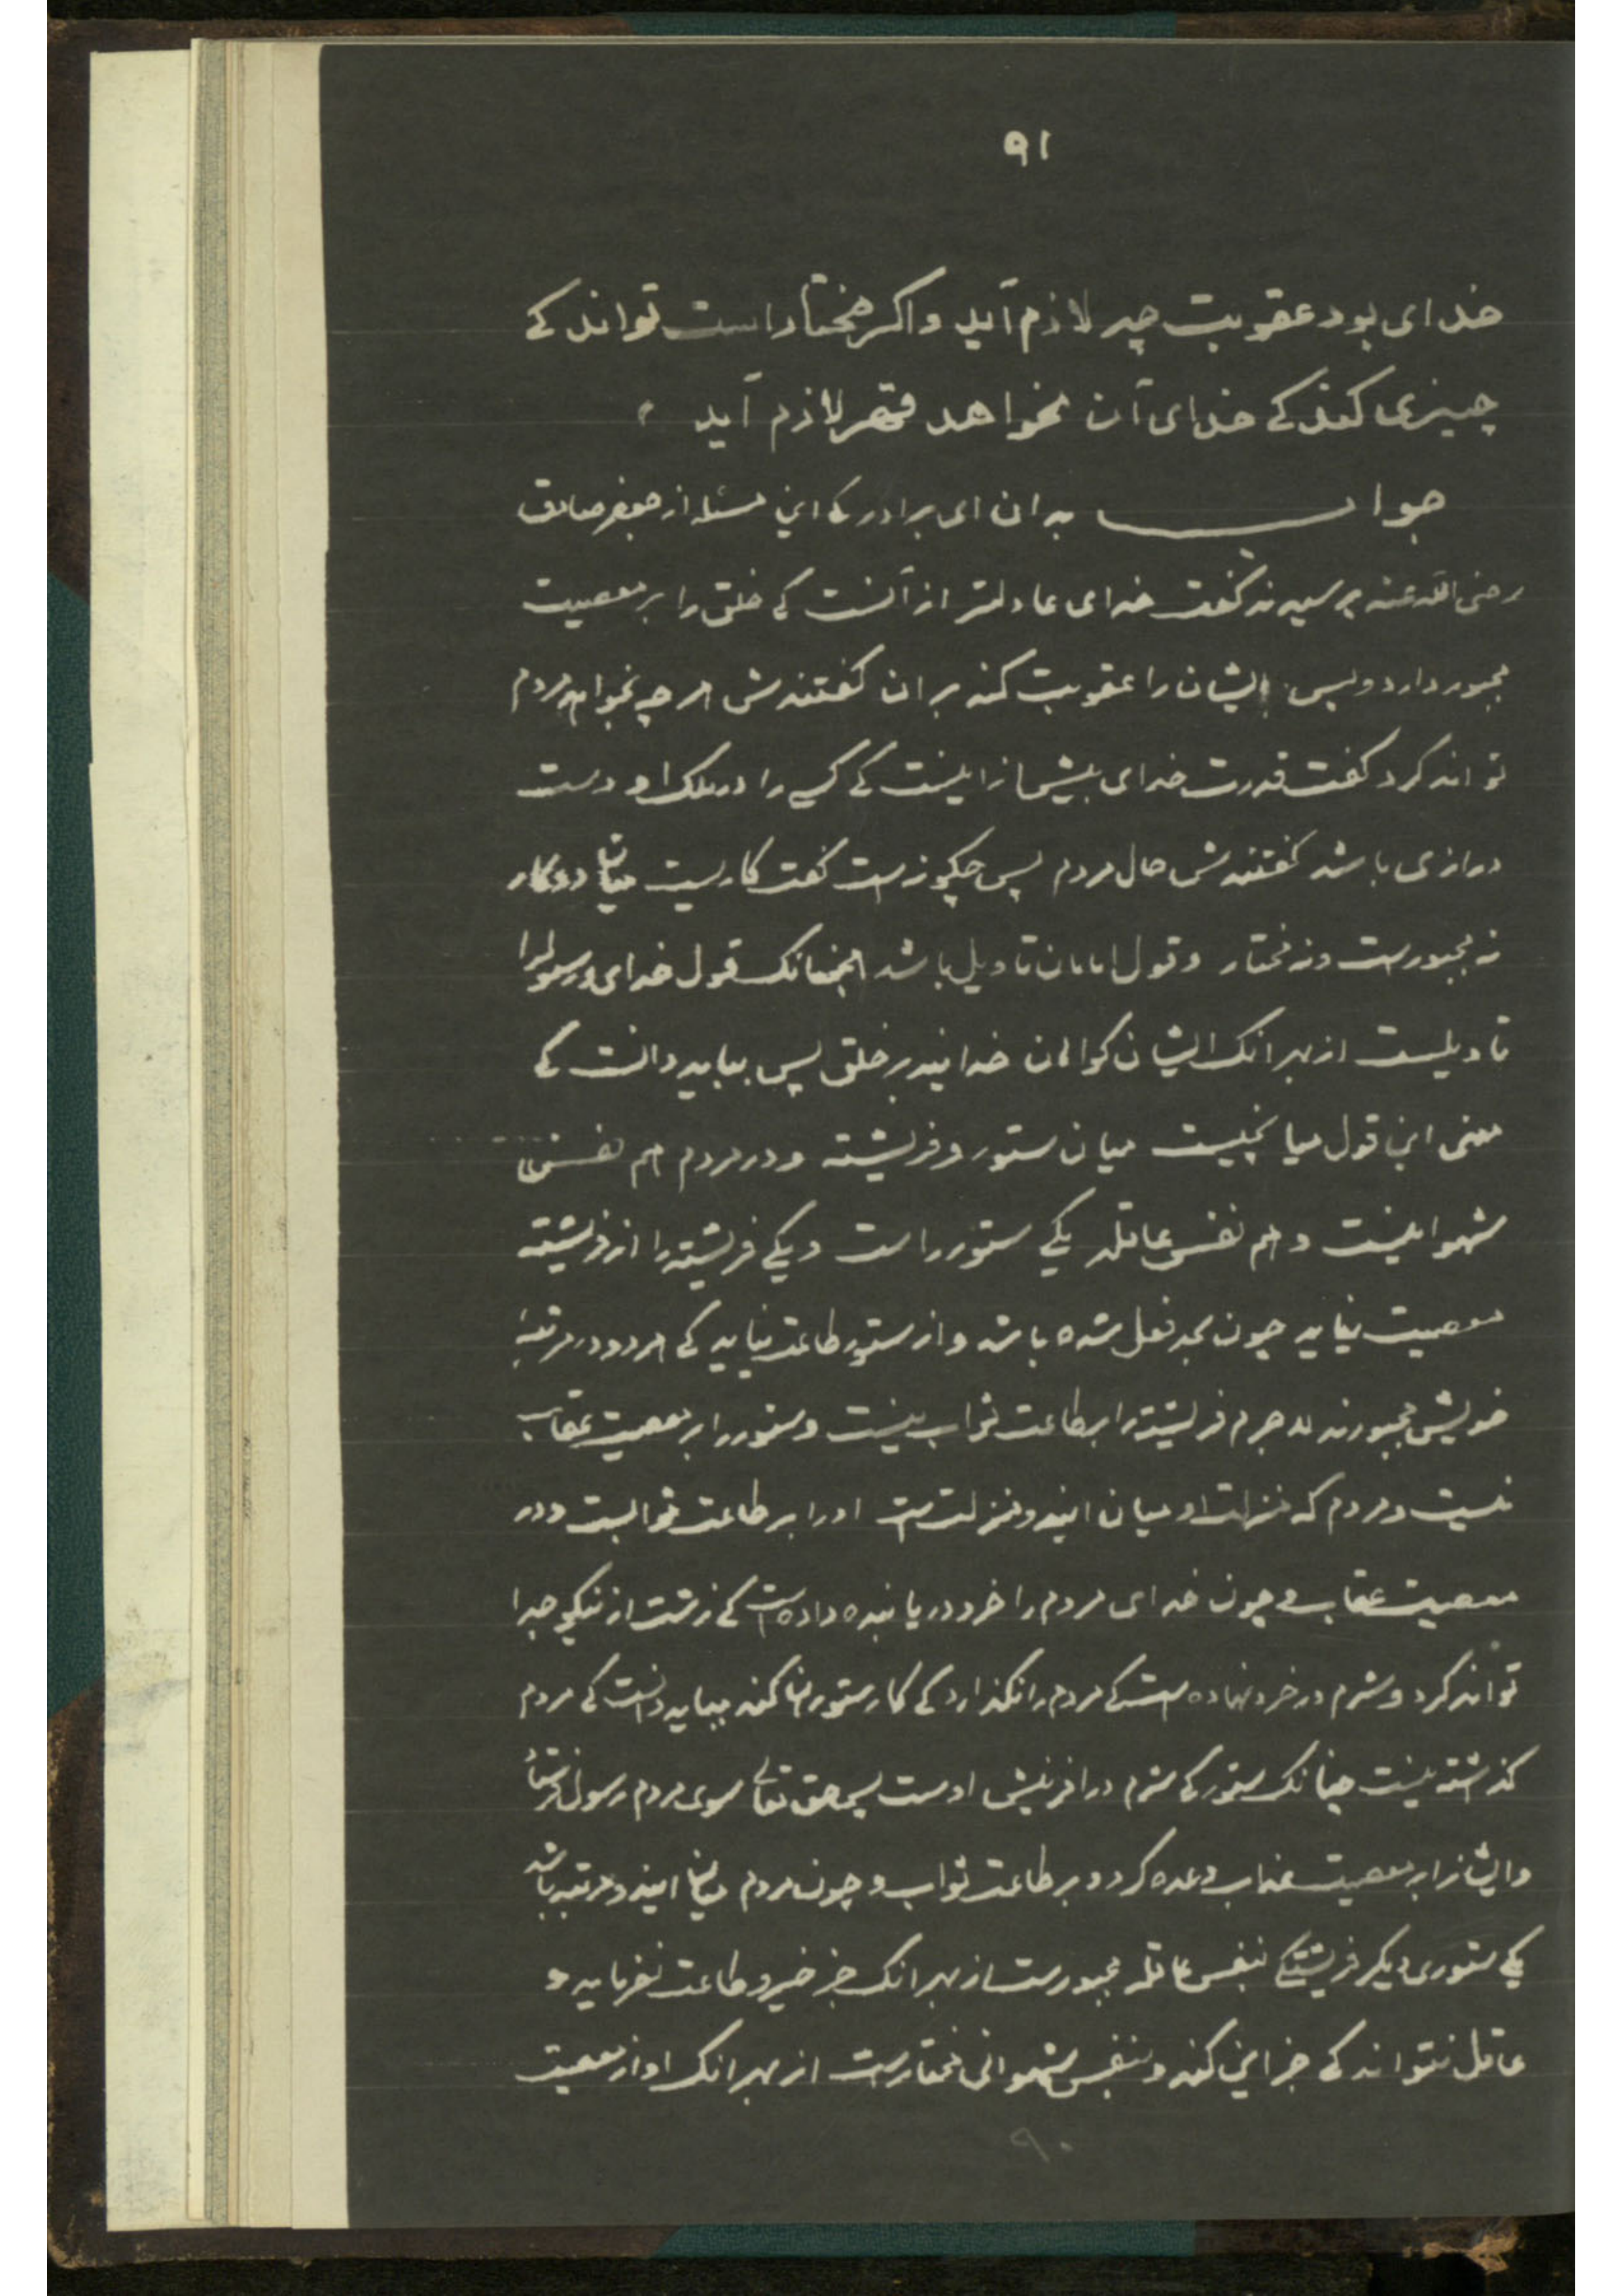 ٩١
خدای بود عقوبت چه لازم آید و اکر مختار است تواند کے
چیزی کند کے خدای آن نخواهد قهر لازم آید
جواب بدان ای برادر کے این مسئله از جعفر صادق
رضی الله عنه پرسیدند کفت خدای عادلتر از آنست کے خلق را بر معصیت
مجبور دارد و پس ایشان را عقوبت کند بر ان کفتندش هر چه بخواهد مردم
تواند کرد کفت قدرت خدای بیش از اینست کے کسے را در ملک او دست
درازی باشد کفتندش حال مردم پس چکونه است کفت کاریست میان دو کار
نه مجبور است و نه مختار و قول امامان تاویل باشد همچنانک قول خدای و رسول را
تاویلست از بهر انک ایشان کواهان خدایند بر خلق پس بباید دانست کے
معنی این قول میانجیست میان ستور و فریشته و در مردم هم نفس
شهوانیست و هم نفس عاقله یکے ستور راست و یکے فریشته را از فریشته
معصیت نیاید چون بحد فعل شده باشد و از ستور طاعت نیاید کے هر دو در مرتبه
خویش مجبورند لا جرم فریشته را بر طاعت ثواب نیست و ستور را بر معصیت عقاب
نیست و مردم که منزلت او میان این دو منزلت است او را بر طاعت ثوابست و در
معصیت عقاب و چون خدای مردم را خرد دریابنده داده است کے زشت از نیکو جدا
تواند کرد و شرم در خرد نهاده است کے مردم را نکذارد کے کار ستوران کند بباید دانست کے مردم
کذاشته نیست چنانک ستور کے شرم در افرینش اوست پس حق تعالے سوی مردم رسول فرستاد
و ایشانرا بر معصیت عذاب وعده کرد و بر طاعت ثواب و چون مردم میان این دو مرتبه باشد
یکے ستوری دیکر فریشتکے بنفس عاقله مجبور ست از بهر انک جز خیر و طاعت نفرماید و
عاقل نتواند کے جز این کند و بنفس شهوانی مختار است از بهر انک او از معصیت
٩٠